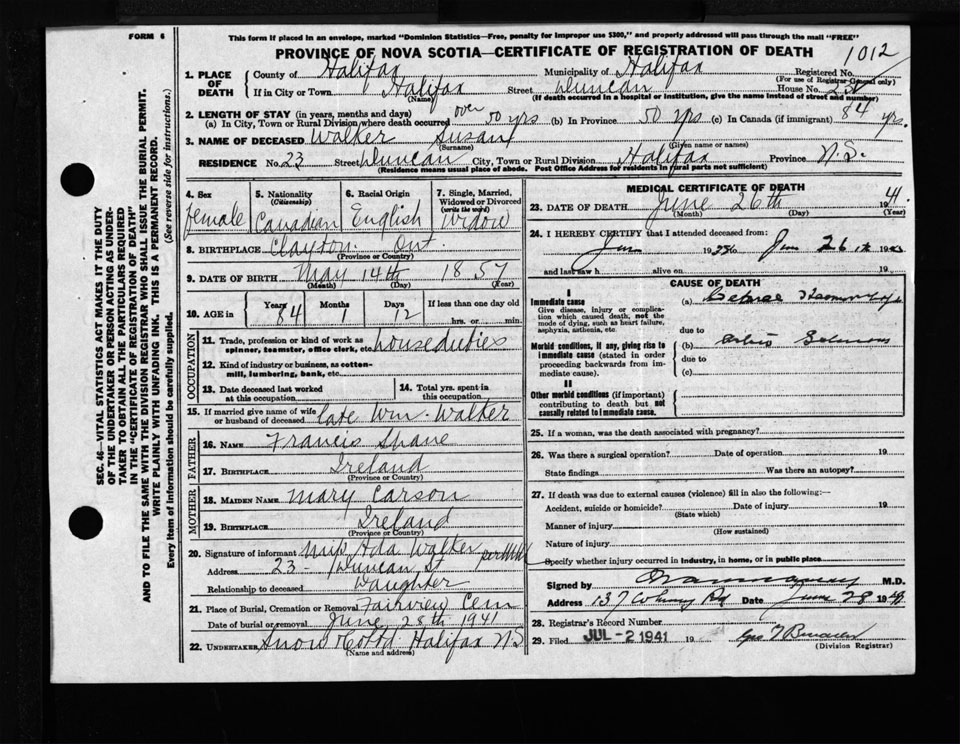 FORM 6
This form if placed in an envelope, marked "Dominion Statistics—Free, penalty for improper use $300," and properly addressed will pass through the mail "FREE"
PROVINCE OF NOVA SCOTIA—CERTIFICATE OF REGISTRATION OF DEATH
1012
1. PLACE OF DEATH
County of Halifax Municipality of Halifax Registered No.
(For use of Registrar General only)
If in City or Town Halifax Street Duncan House No. 23
(Name) (If death occurred in a hospital or institution, give the name instead of street and number)
2. LENGTH OF STAY (in years, months and days)
(a) In City, Town or Rural Division where death occurred over 50 yrs (b) In Province 50 yrs (c) In Canada (if immigrant) 84 yrs.
3. NAME OF DECEASED Walker Susan
(Surname) (Given name or names)
RESIDENCE No. 23 Street Duncan City, Town or Rural Division Halifax Province N.S.
(Residence means usual place of abode. Post Office Address for residents in rural parts not sufficient)
4. Sex female
5. Nationality (Citizenship) Canadian
6. Racial Origin English
7. Single, Married, Widowed or Divorced (write the word) Widow
8. BIRTHPLACE Clayton Ont.
(Province or Country)
9. DATE OF BIRTH May 14th 1857
(Month) (Day) (Year)
10. AGE in Years 84 Months 1 Days 12 If less than one day old
hrs. or min.
OCCUPATION
11. Trade, profession or kind of work as spinner, teamster, office clerk, etc. house duties
12. Kind of industry or business, as cotton-mill, lumbering, bank, etc.
13. Date deceased last worked at this occupation
14. Total yrs. spent in this occupation
15. If married give name of wife or husband of deceased late Wm. Walker
FATHER
16. NAME Francis Shane
17. BIRTHPLACE Ireland
(Province or Country)
MOTHER
18. MAIDEN NAME Mary Carson
19. BIRTHPLACE Ireland
(Province or Country)
20. Signature of informant Miss Ada Walker per
Address 23 - Duncan St
Relationship to deceased Daughter
21. Place of Burial, Cremation or Removal Fairview Cem
Date of burial or removal June 28th 1941
22. UNDERTAKER Snow & Co Ltd Halifax N.S.
(Name and address)
MEDICAL CERTIFICATE OF DEATH
23. DATE OF DEATH June 26th 1941
(Month) (Day) (Year)
24. I HEREBY CERTIFY that I attended deceased from:
June 19 to June 26th 19
and last saw h alive on 19
CAUSE OF DEATH
I
Immediate cause
Give disease, injury or complication which caused death, not the mode of dying, such as heart failure, asphyxia, asthenia, etc.
(a)
due to
Morbid conditions, if any, giving rise to immediate cause (stated in order proceeding backwards from immediate cause).
(b)
due to
(c)
II
Other morbid conditions (if important) contributing to death but not causally related to immediate cause.
25. If a woman, was the death associated with pregnancy?
26. Was there a surgical operation? Date of operation 19
State findings Was there an autopsy?
27. If death was due to external causes (violence) fill in also the following:—
Accident, suicide or homicide? Date of injury 19
(State which)
Manner of injury
(How sustained)
Nature of injury
Specify whether injury occurred in industry, in home, or in public place
Signed by M.D.
Address 137 Rd Date June 28 19
28. Registrar's Record Number
29. Filed JUL -2 1941 19
(Division Registrar)
SEC. 46—VITAL STATISTICS ACT MAKES IT THE DUTY
OF THE UNDERTAKER OR PERSON ACTING AS UNDERTAKER
TO OBTAIN ALL THE PARTICULARS REQUIRED
IN THE "CERTIFICATE OF REGISTRATION OF DEATH"
AND TO FILE THE SAME WITH THE DIVISION REGISTRAR WHO SHALL ISSUE THE BURIAL PERMIT.
WRITE PLAINLY WITH UNFADING INK. THIS IS A PERMANENT RECORD.
Every item of information should be carefully supplied. (See reverse side for instructions.)